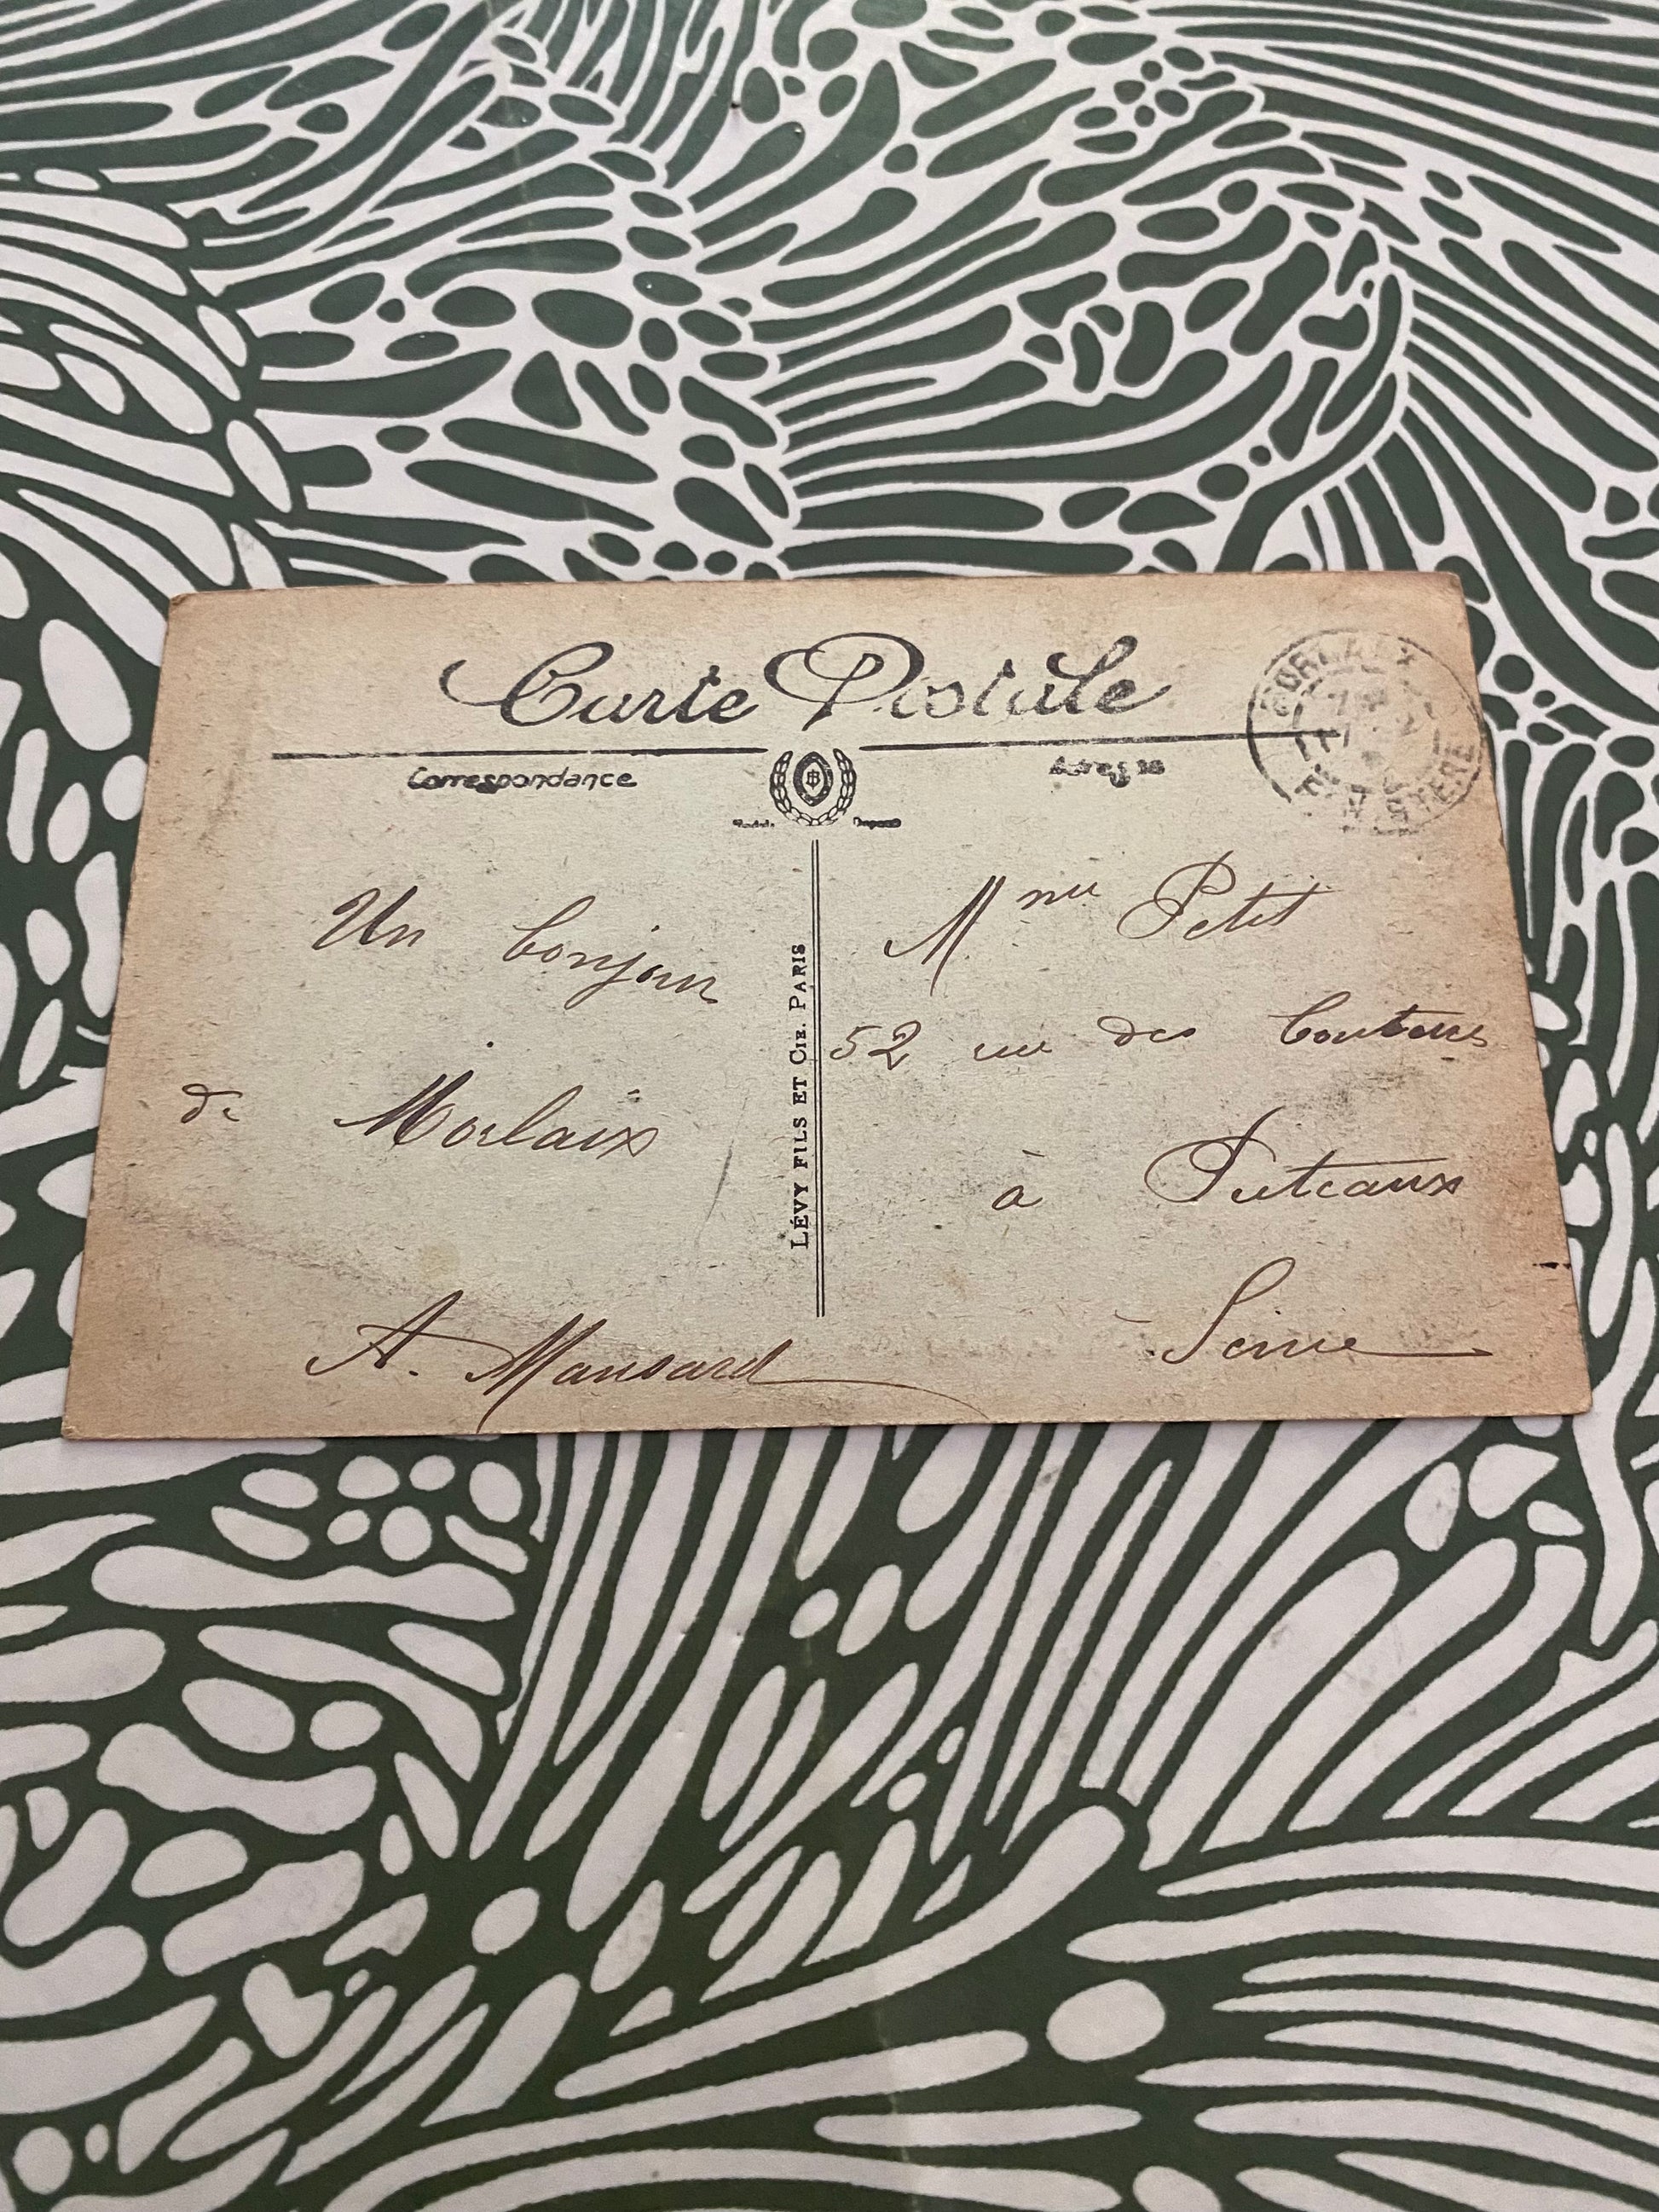 Carte Postale
Correspondance
Adresse
MORLAIX
FINISTERE
LÉVY FILS ET CIE. PARIS
Un bonjour
de Morlaix
A. Mansard
Mme Petit
52 rue des
à Puteaux
Seine